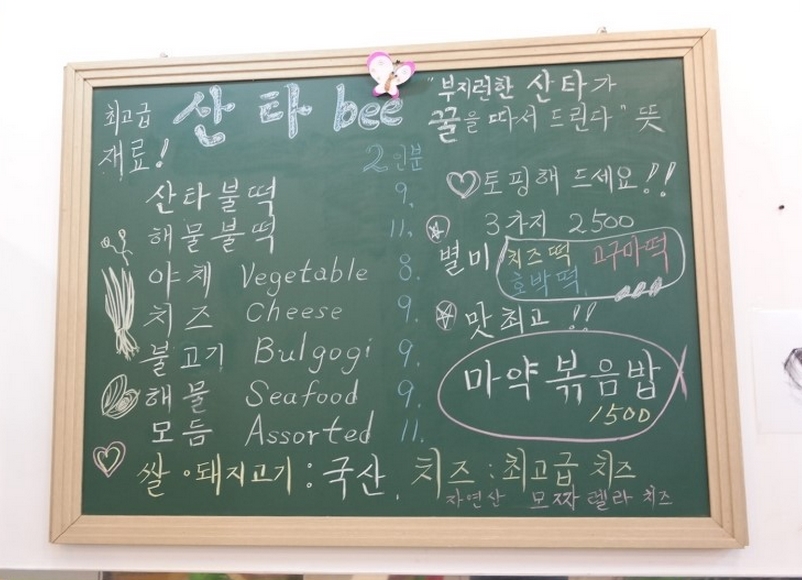 최고급 산타bee
재료!
2인분
산타불떡 9.
해물불떡 11.
야채 Vegetable 8.
치즈 Cheese 9.
불고기 Bulgogi 9.
해물 Seafood 9.
모듬 Assorted 11.
"부지런한 산타가
꿀을 따서 드린다" 뜻
토핑해 드세요!!
3가지 2500
별미 치즈떡 고구마떡
호박떡
맛최고!!
마약볶음밥
1500
쌀·돼지고기:국산, 치즈:최고급 치즈
자연산 모짜렐라 치즈